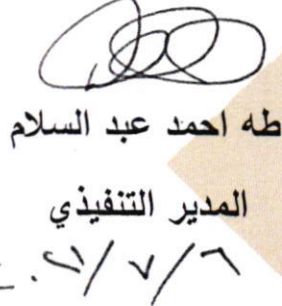 طه احمد عبد السلام
المدير التنفيذي
٦/٧/٢٠٢١